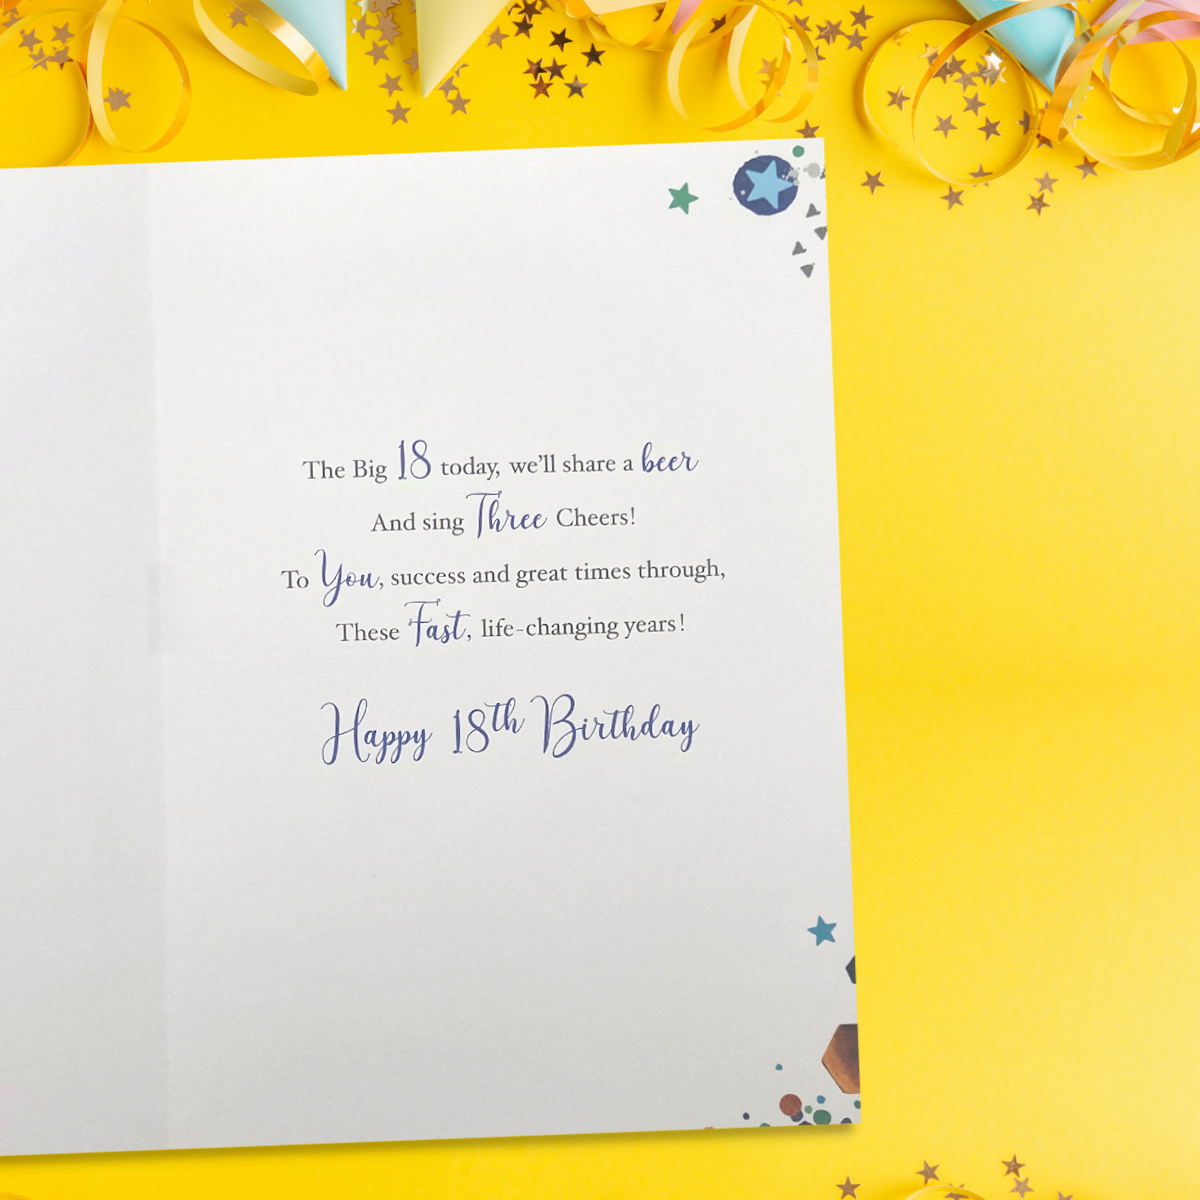 The Big 18 today, we'll share a beer
And sing Three Cheers!
To You, success and great times through,
These Fast, life-changing years!
Happy 18th Birthday